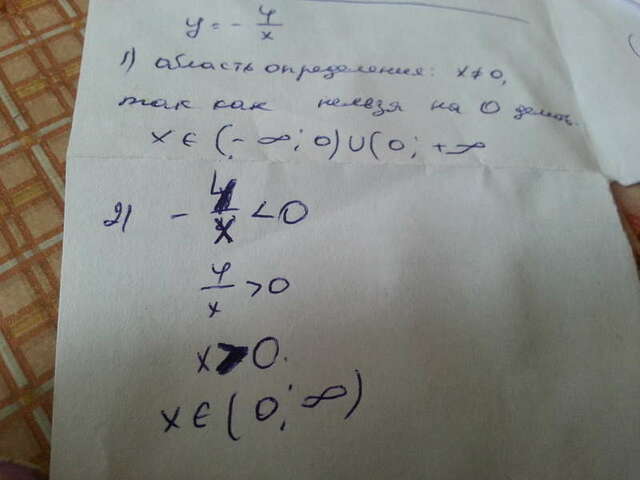 y = - 4/x
1) область определения: x ≠ 0,
так как нельзя на 0 делить.
x ∈ (- ∞; 0) ∪ (0; +∞
2) - 4/x < 0
4/x > 0
x > 0.
x ∈ (0; ∞)